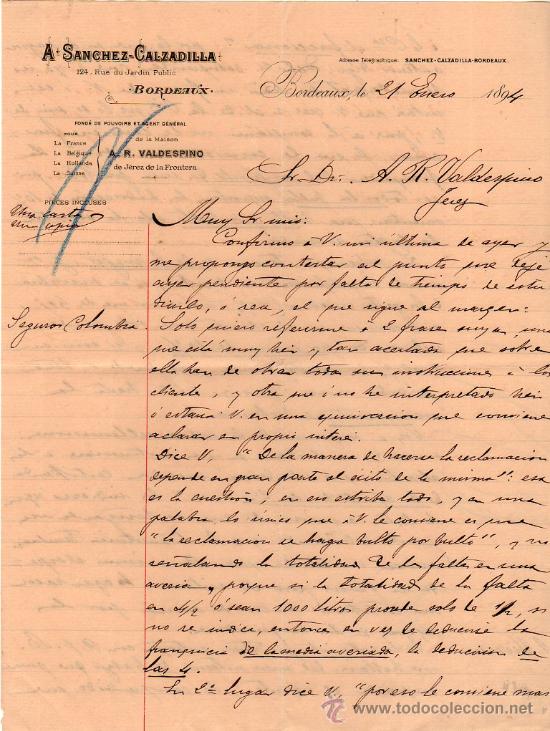 A. SANCHEZ-CALZADILLA
124, Rue du Jardin Public
BORDEAUX
Adresse Télégraphique: SANCHEZ-CALZADILLA-BORDEAUX.
Bordeaux, le 21 Enero 1894
FONDÉ DE POUVOIRS ET AGENT GÉNÉRAL
POUR
La France
La Belgique
La Hollande
La Suisse
de la Maison
A. R. VALDESPINO
de Jérez de la Frontera
PIÈCES INCLUSES
Una carta
una copia
Sr. Dn. A. R. Valdespino
Jerez
Muy Sr mio:
Confirmo à V. mi última de ayer y
me propongo contestar al punto que dejé
ayer pendiente por falta de tiempo de estu
diarlo, ó sea, el que sigue al margen:
Seguros Colombia.
Solo quiero referirme à 2 frases suyas, una
que está muy bien y tan acertada que sobre
ella han de obrar todas sus instrucciones à los
clientes, y otra que ó no he interpretado bien
ó estaria V. en una equivocacion que conviene
aclarar en propio interés.
Dice V. "De la manera de hacerse la reclamacion
depende en gran parte el éxito de la misma": esa
es la cuestión, en eso estriba todo, y en una
palabra lo único que à V. le conviene es que
"la reclamacion se haga bulto por bulto", y no
señalando la totalidad de las faltas en una
averia, porque si la totalidad de la falta
en 4/2 ó sean 1000 litros procede solo de 1/2, si
no se indica, entonces en vez de deducirse la
franquicia de la media averiada, la deducirian de
las 4.
En 2º lugar dice V. "por eso le conviene mas
todocoleccion.net